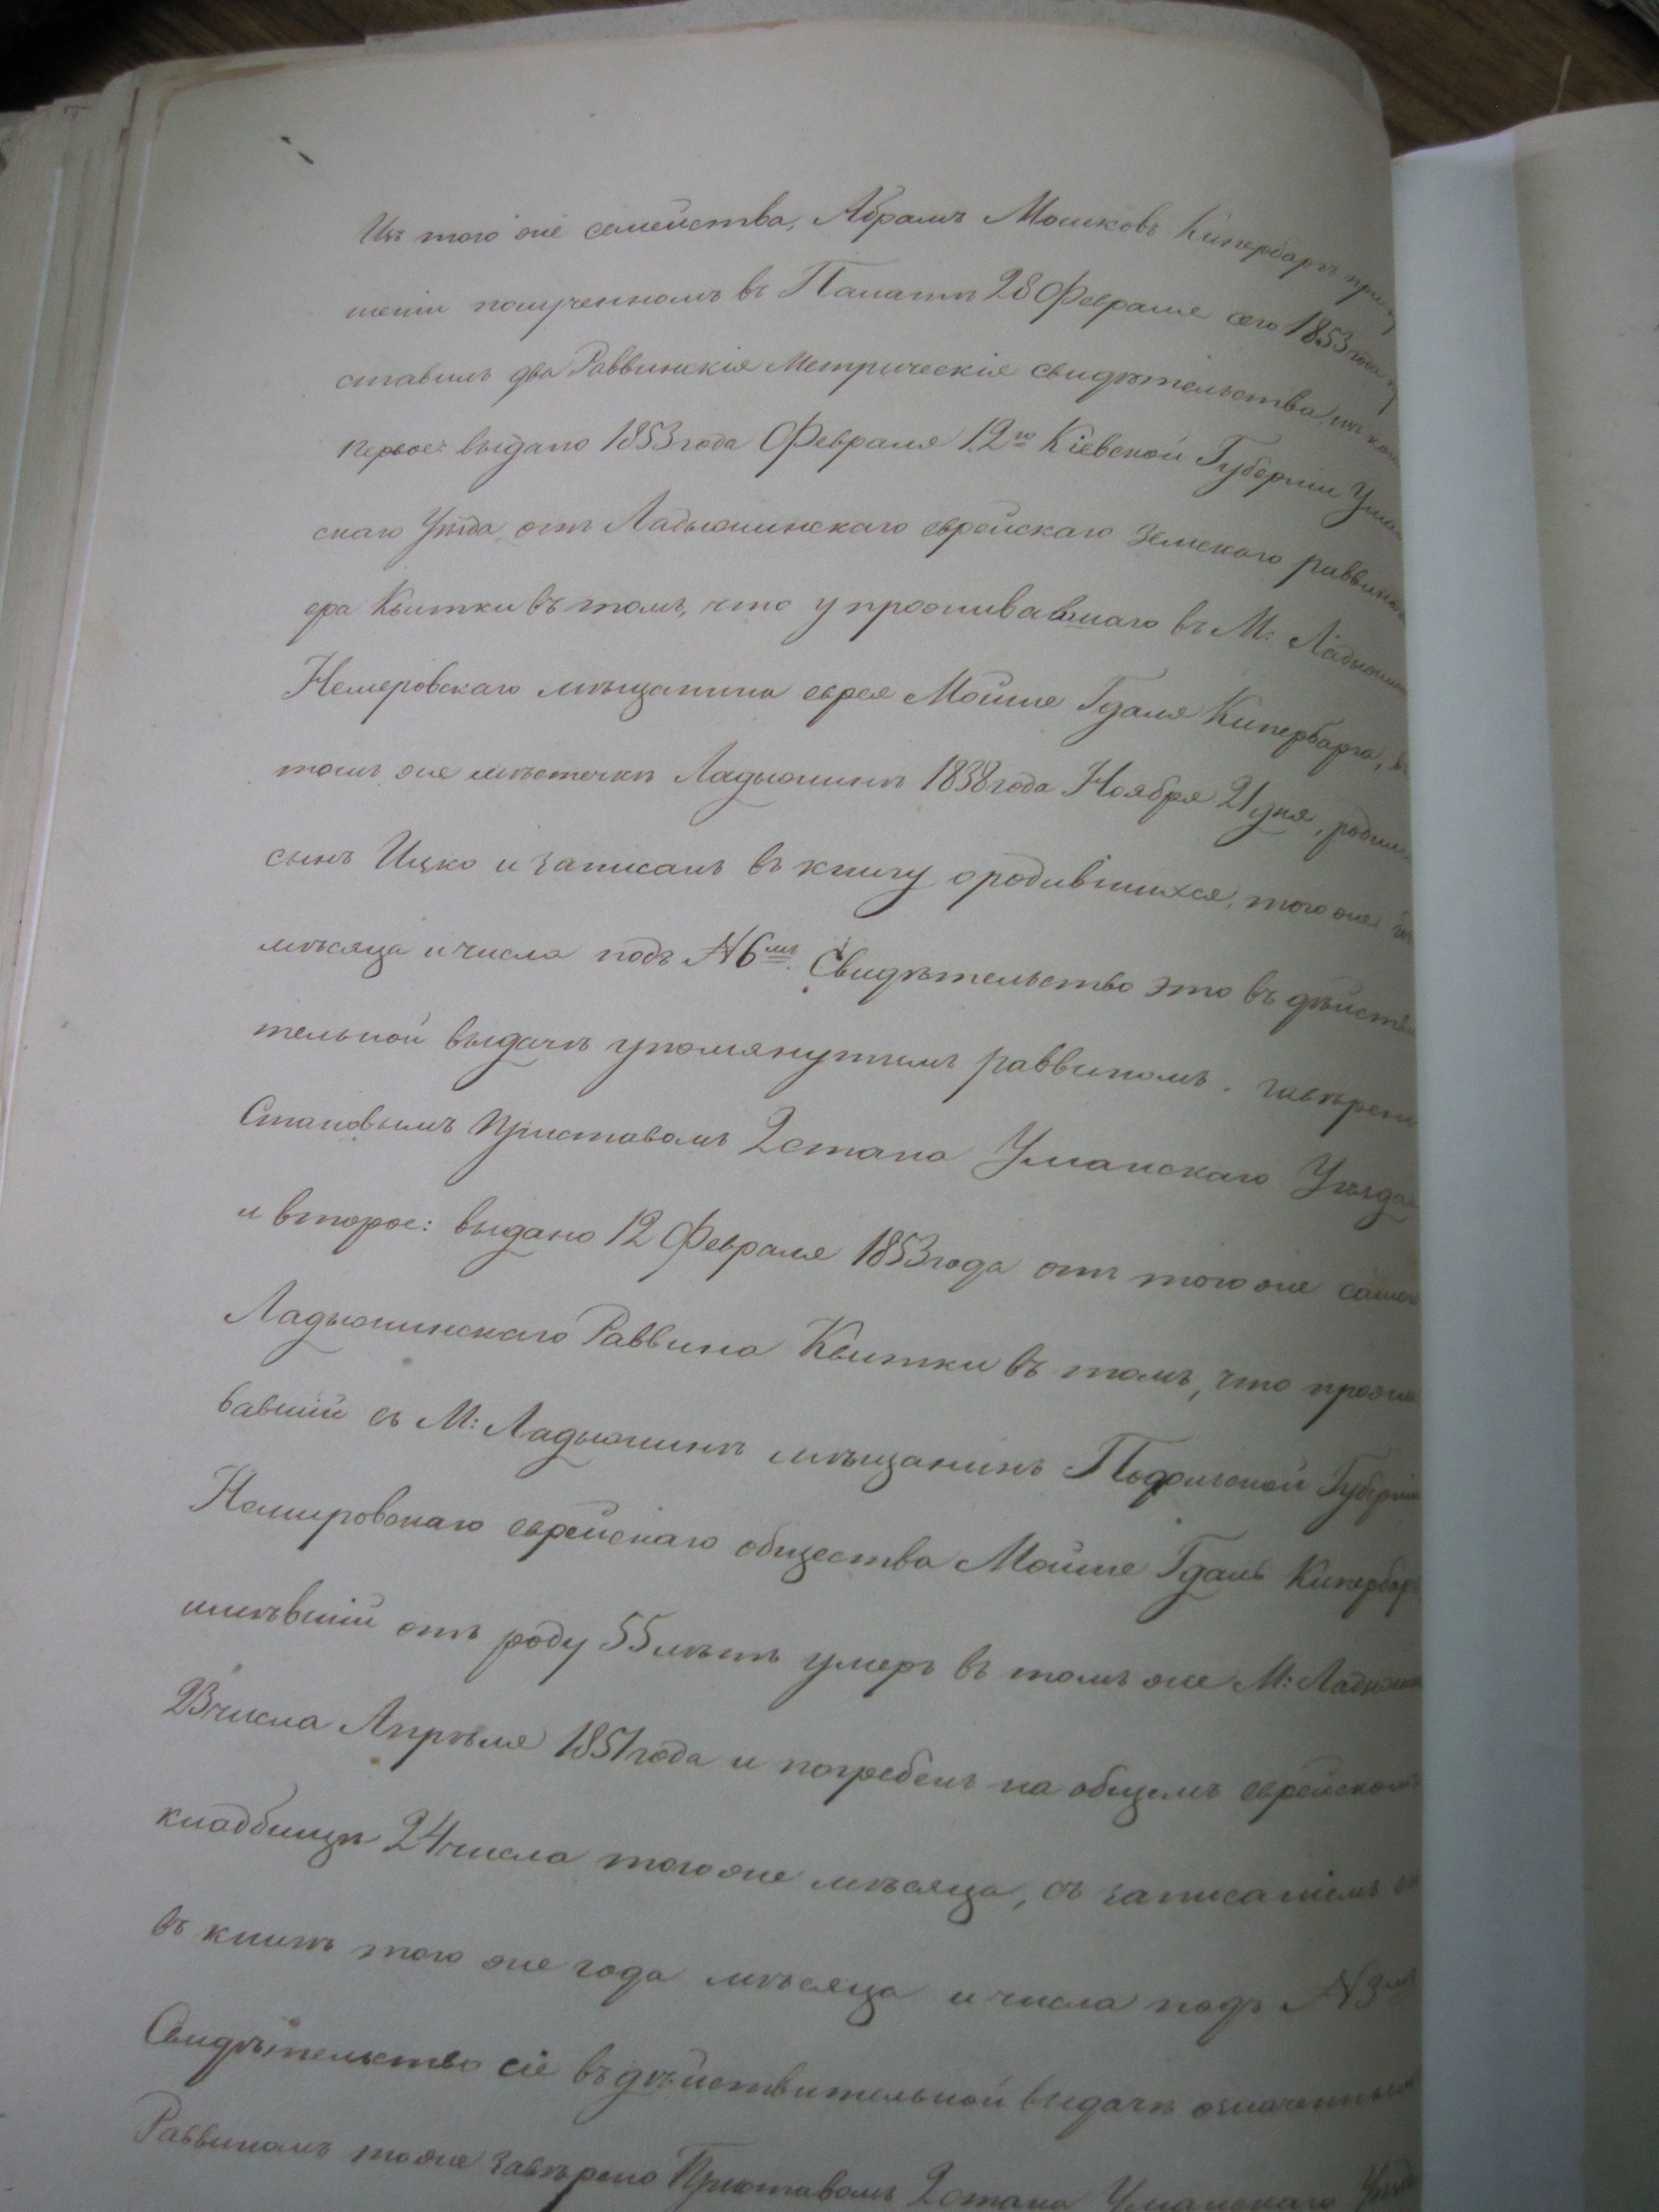 Изъ того же семейства, Абрамъ Мошковъ Кипербаргъ при
шеніи полученномъ въ Палатѣ 28 Февраля сего 1853 года
ставилъ два Раввинскія Метрическія свидѣтельства, изъ
первое: выдано 1853 года Февраля 12го Кіевской Губерніи Уман
скаго Уѣзда, отъ Ладыжинскаго еврейскаго Земскаго раввина
ера Квитки въ томъ, что у проживавшаго въ М. Ладыжин
Немеровскаго мѣщанина еврея Мойше Гдаля Кипербарга, въ
томъ же мѣстечкѣ Ладыжинѣ 1838 года Ноября 21 дня, родился
сынъ Ицко и записанъ въ книгу о родившихся, того же
мѣсяца и числа подъ N 6мъ. Свидѣтельство это въ дѣйстви
тельной выдачѣ упомянутымъ раввиномъ. завѣрено
Становымъ Приставомъ 2 стана Уманскаго Уѣзда
и второе: выдано 12 Февраля 1853 года отъ того же самаго
Ладыжинскаго Раввина Квитки въ томъ, что прожи
вавшій въ М: Ладыжинѣ мѣщанинъ Подольской Губерніи
Немировскаго еврейскаго общества Мойше Гдаль Кипербаргъ
имѣвшій отъ роду 55 лѣтъ умеръ въ томъ же М: Ладыжин
23 числа Апрѣля 1851 года и погребенъ на общемъ еврейскомъ
кладбищѣ 24 числа того же мѣсяца, съ записаніемъ
въ книгѣ того же года мѣсяца и числа подъ N 3мъ
Свидѣтельство сіе въ дѣйствительной выдачѣ означеннымъ
Раввиномъ тоже завѣрено Приставомъ 2 стана Уманскаго Уѣзда